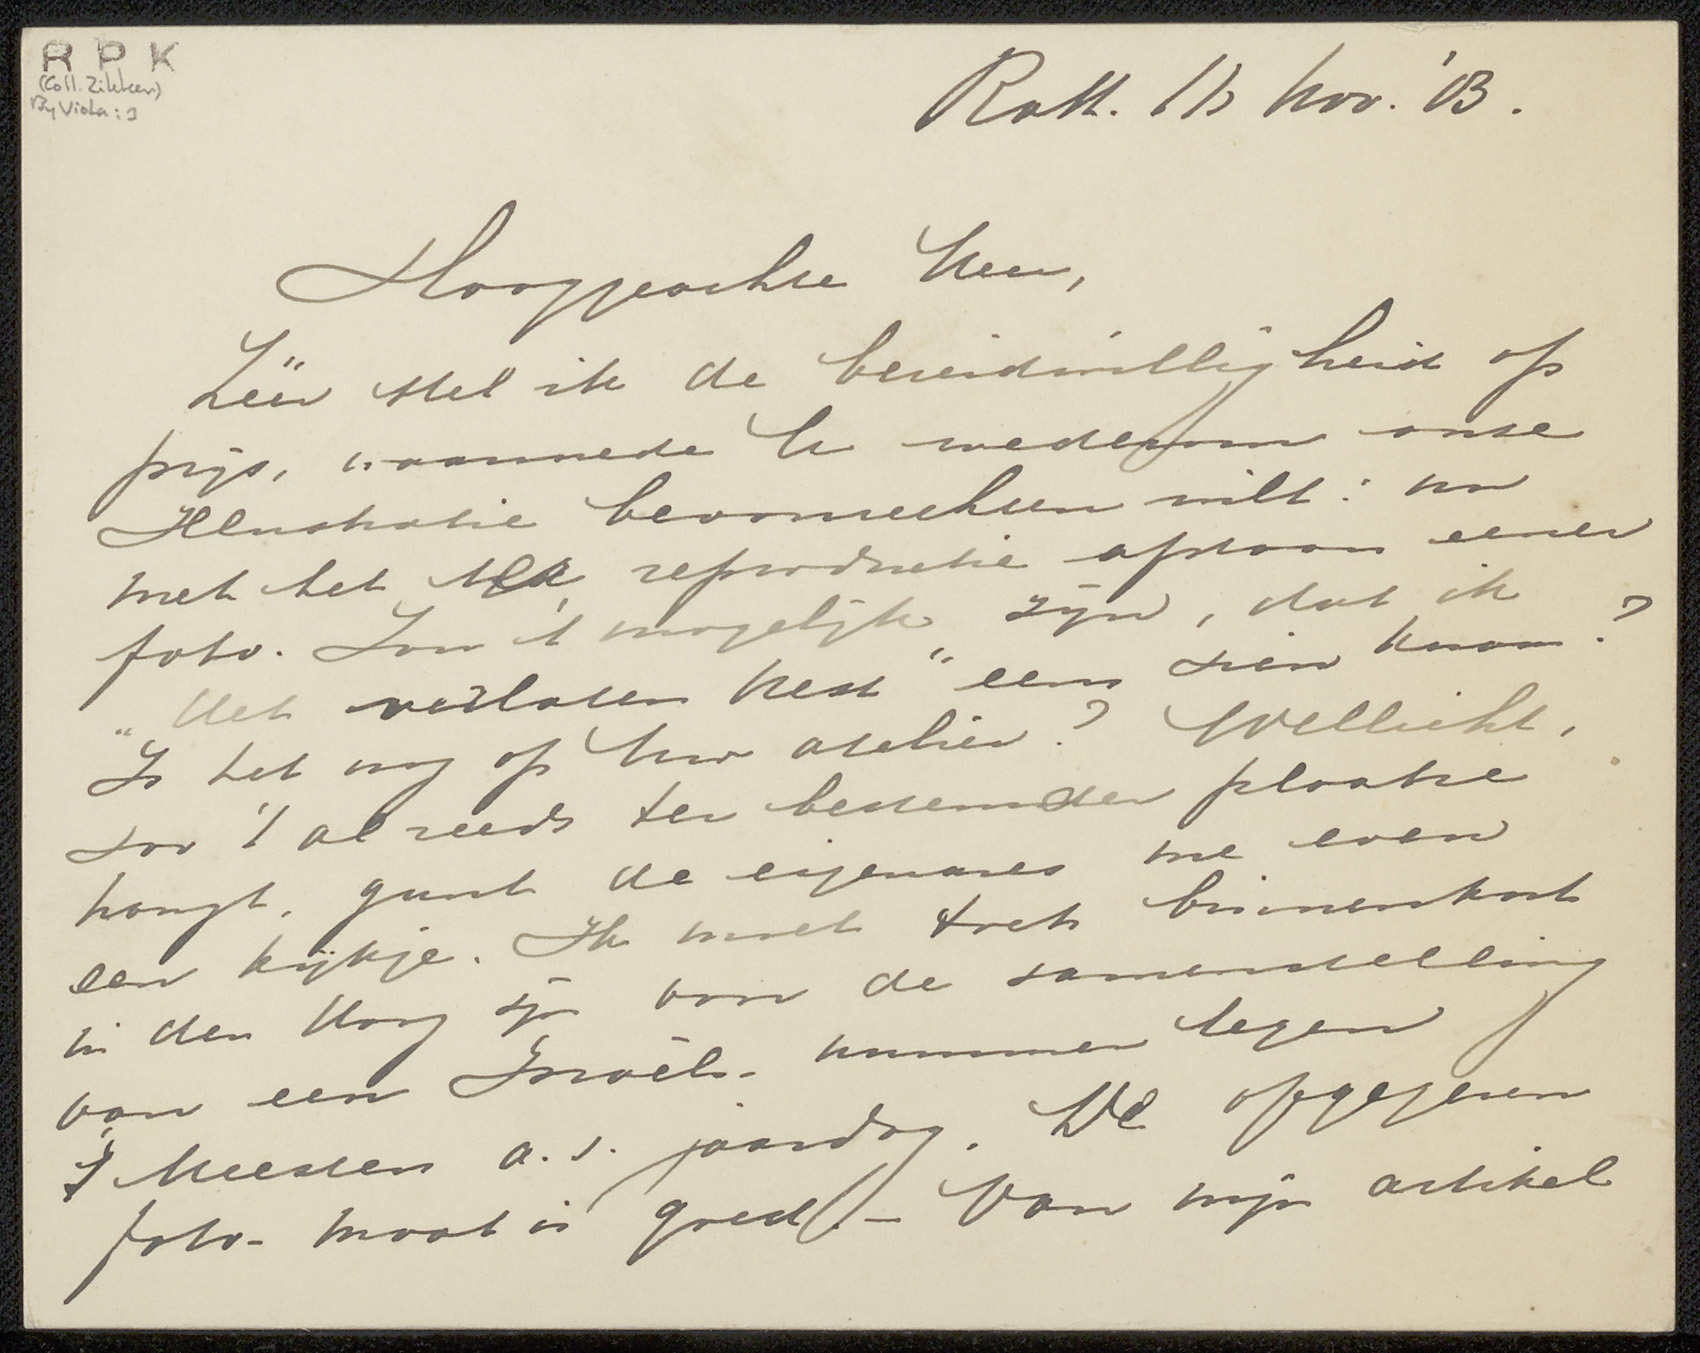 R P K
(Coll. Zilcken)
By Viola: 1
Rott. 16 Nov. '03.
Hooggeachte Heer,
Zéér stel ik de bereidwilligheid op
prijs, waarmede U wederom onze
Illustratie bevoorrechten wilt: nu
met het ter reproductie afstaan eener
foto. Zou 't mogelijk zijn, dat ik
„Het verlaten Nest" eens zien kwam?
Is het nog op Uw atelier? Wellicht,
zoo 't al reeds ter bestemder plaatse
hangt, gunt de eigenares me even
een kijkje. Ik moet toch binnenkort
in den Haag zijn voor de samenstelling
van een Israëls-nummer tegen
's Meesters a.s. jaardag. De opgegeven
foto-maat is goed. – Van mijn artikel